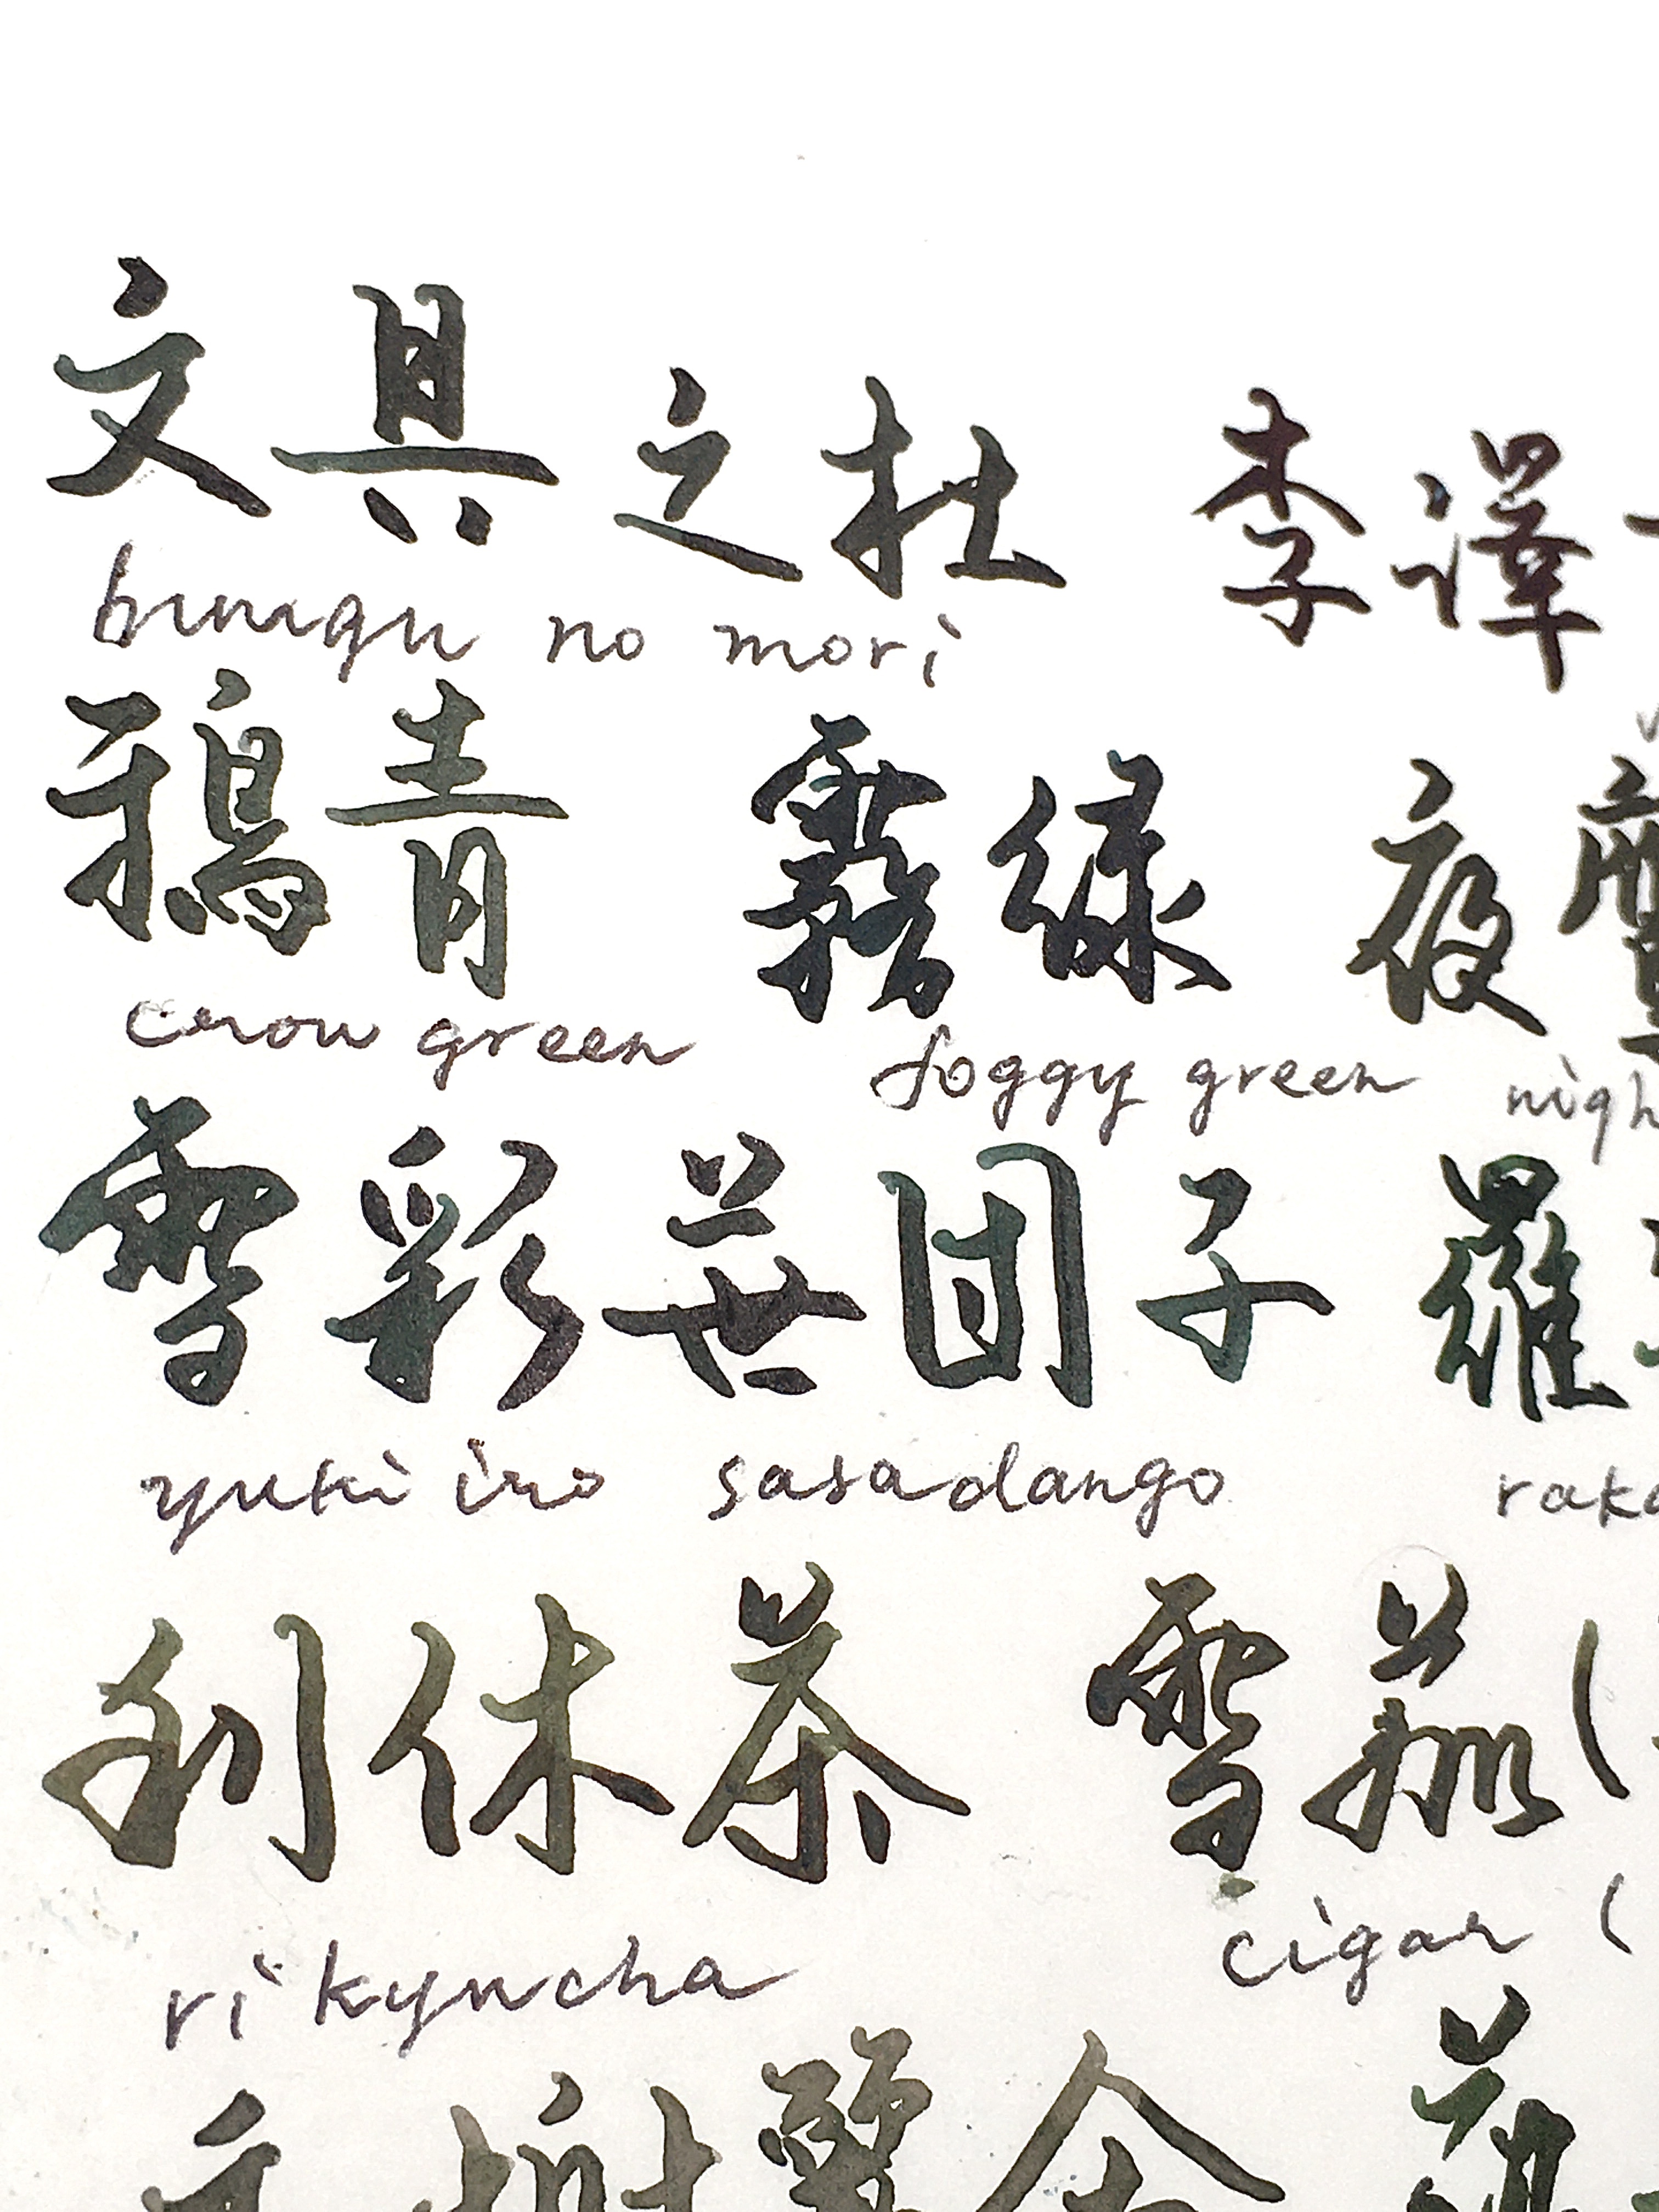 文具之杜 李譚
bungu no mori
鴉青 霧緑 夜鷹
crow green foggy green nigh
雪彩葉団子 羅
yuki iro sasadango raka
利休茶 雪茄 (
rikyucha cigar (